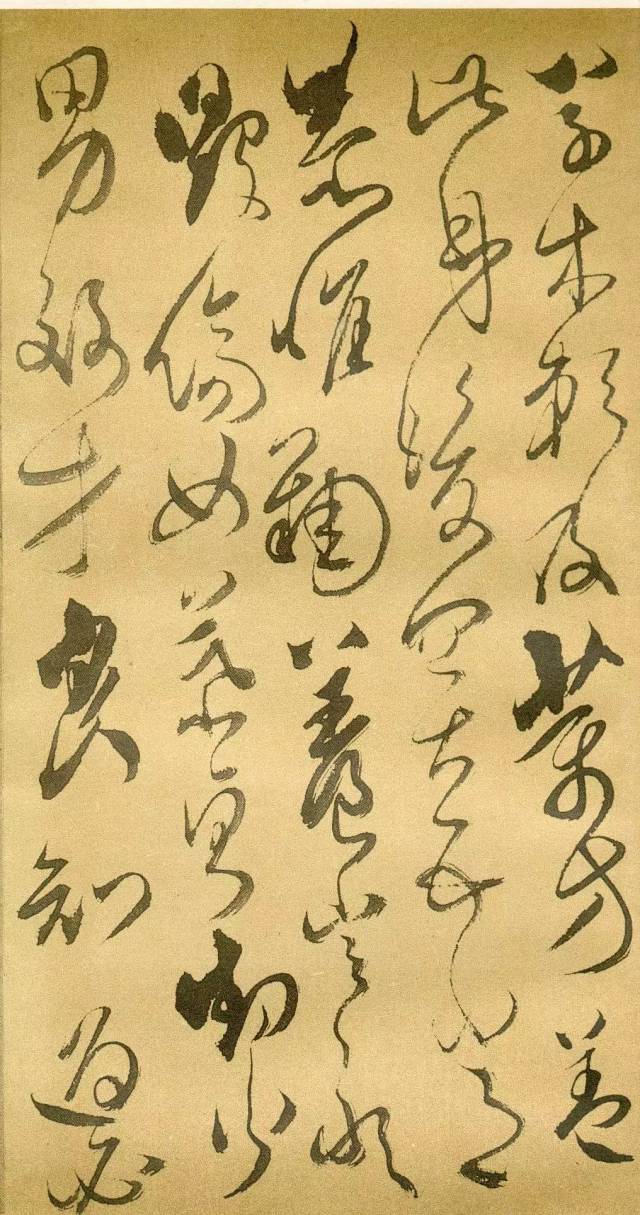 草木賴及萬方蓋
此身髮四大五常
恭惟鞠養豈敢
毀傷女慕貞絜
男效才良知過必